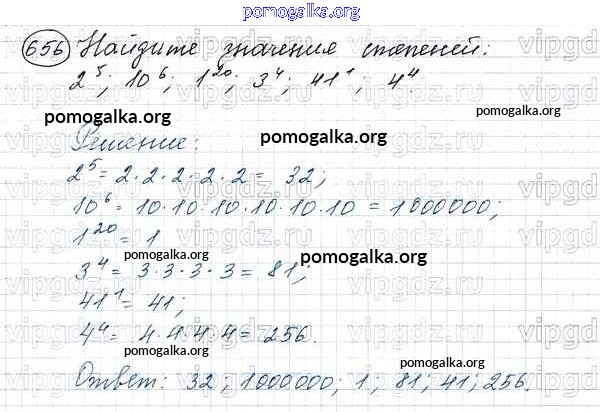 pomogalka.org
656 Найдите значения степеней:
2⁵; 10⁶; 1²⁰; 3⁴; 41¹; 4⁴.
pomogalka.org
Решение:
pomogalka.org
2⁵ = 2·2·2·2·2 = 32;
10⁶ = 10·10·10·10·10·10 = 1000000;
1²⁰ = 1
pomogalka.org pomogalka.org
3⁴ = 3·3·3·3 = 81;
41¹ = 41;
4⁴ = 4·4·4·4 = 256.
pomogalka.org pomogalka.org
Ответ: 32; 1000000; 1; 81; 41; 256.
pomogalka.org
vipgdz.ru